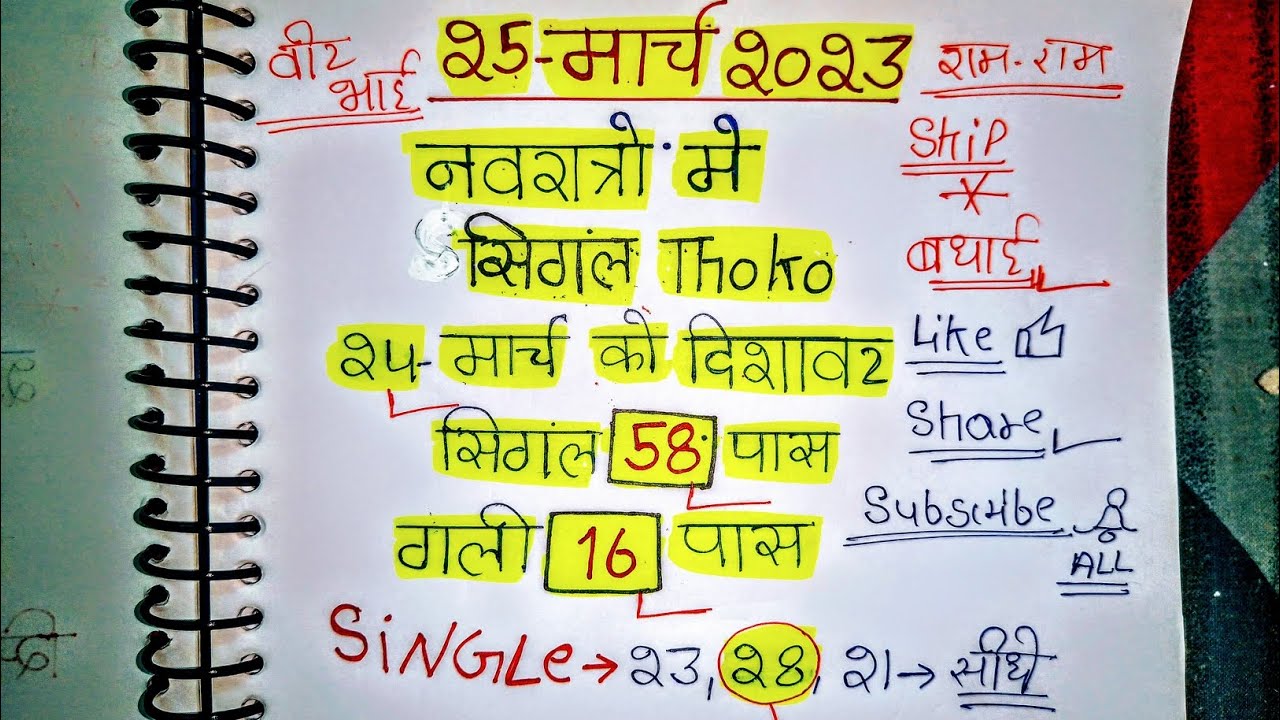 वीर भाई २5-मार्च २०२3 राम-राम
नवरात्रो में
Ship
बधाई
सिगंल Thoko
२५-मार्च को दिशावर
Like
सिगंल 58 पास
Share
गली 16 पास
Subscribe
ALL
SiNGLe→२3, २४, २1→सीधे